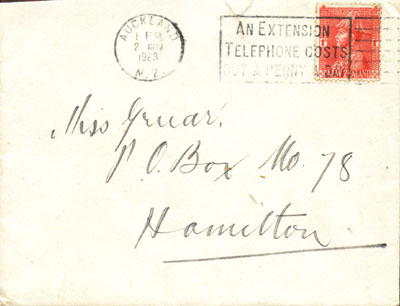 AUCKLAND
1 PM
2 NOV
1928
N.Z.
AN EXTENSION
TELEPHONE COSTS
BUT A PENNY A DAY
Miss Gruar.
P.O. Box No. 78
Hamilton.